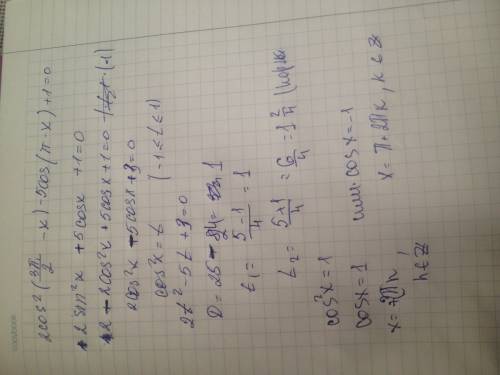 2cos²(3π/2 - x) - 5cos(π - x) + 1 = 0
2sin²x + 5cosx + 1 = 0
2 - 2cos²x + 5cosx + 1 = 0 | · (-1)
2cos²x - 5cosx + 3 = 0
cos²x = t (-1 ≤ t ≤ 1)
2t² - 5t + 3 = 0
D = 25 - 24 = 1
t₁ = 5 - 1 / 4 = 1
t₂ = 5 + 1 / 4 = 6/4 = 1 2/4
cos²x = 1
cosx = 1 или cosx = -1
x = 2πn, x = π + 2πk, k ∈ Z
n ∈ Z